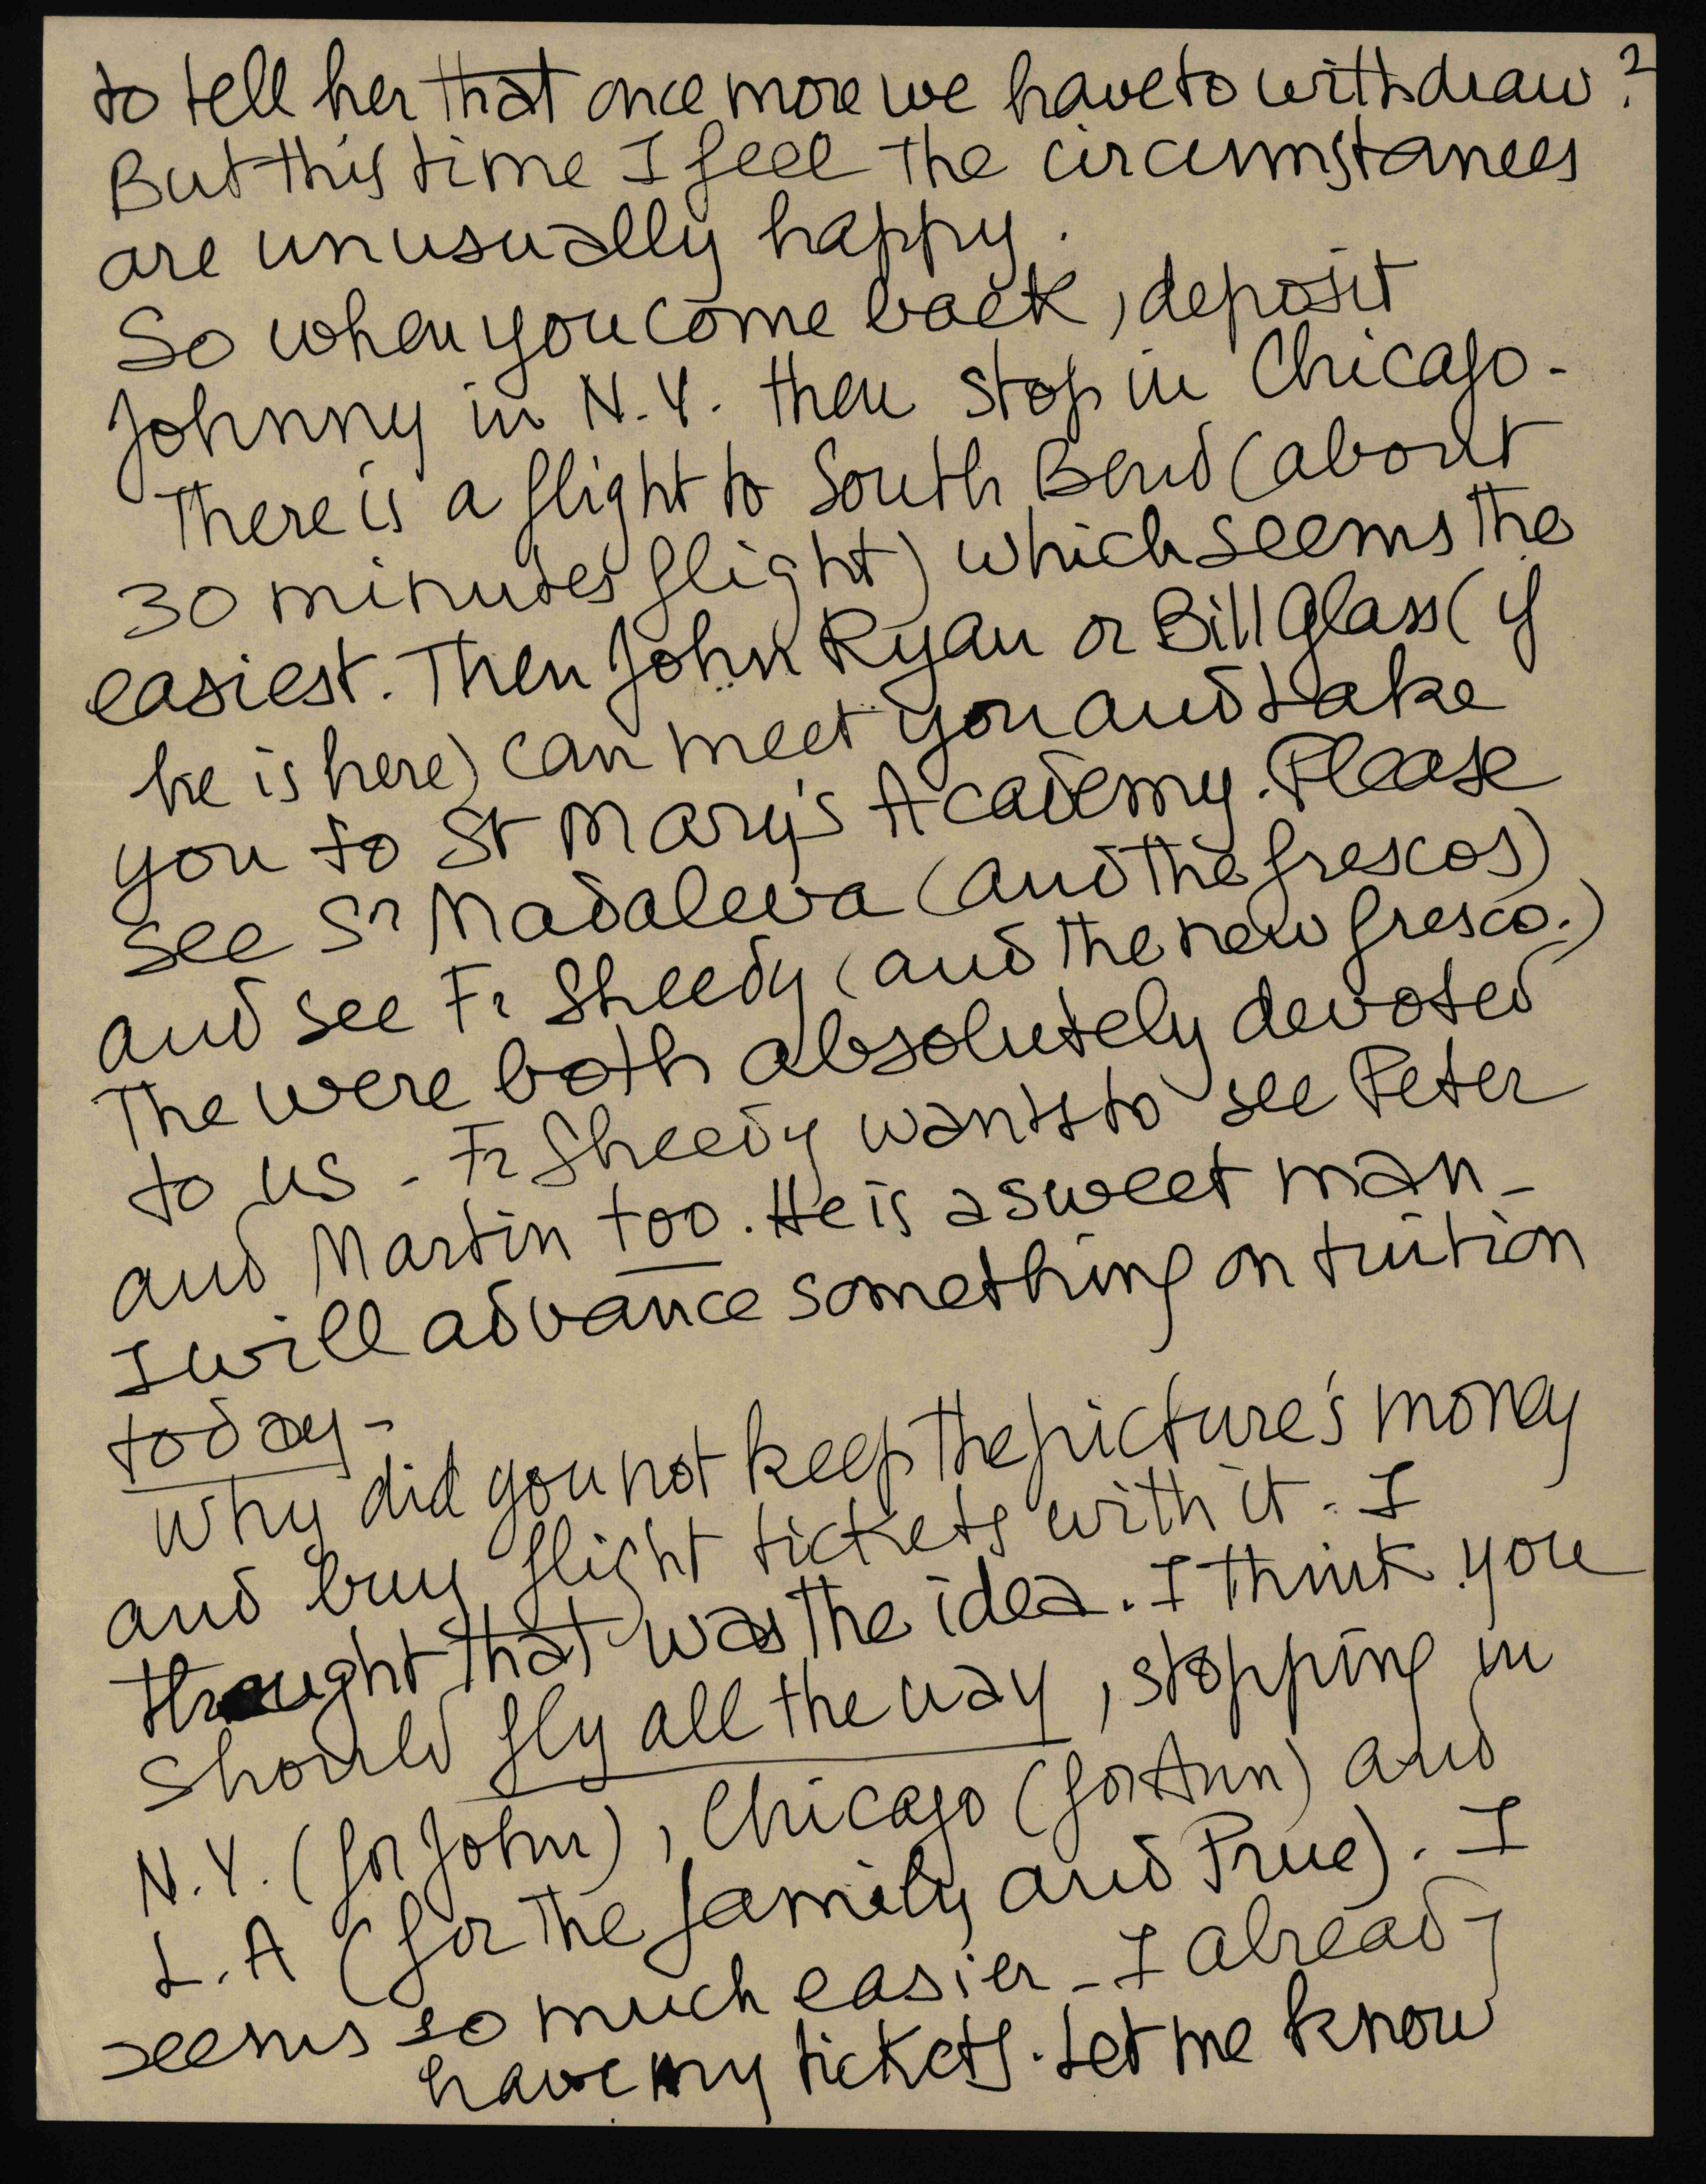 to tell her that once more we have to withdraw?
But this time I feel the circumstances
are unusually happy.
So when you come back, deposit
Johnny in N.Y. then stop in Chicago -
There is a flight to South Bend (about
30 minutes flight) which seems the
easiest. Then John Ryan or Bill Glass (if
he is here) can meet you and take
you to St Mary's Academy. Please
see Sr Madaleva (and the frescos)
and see Fr Sheedy (and the new fresco.)
The were both absolutely devoted
to us - Fr Sheedy wants to see Peter
and Martin too. He is a sweet man -
I will advance something on tuition
today -
Why did you not keep the picture's money
and buy flight tickets with it. I
thought that was the idea. I think you
should fly all the way, stopping in
N.Y. (for John), Chicago (for Ann) and
L.A (for the family and Prue). I
seems so much easier - I already
have my tickets. Let me know